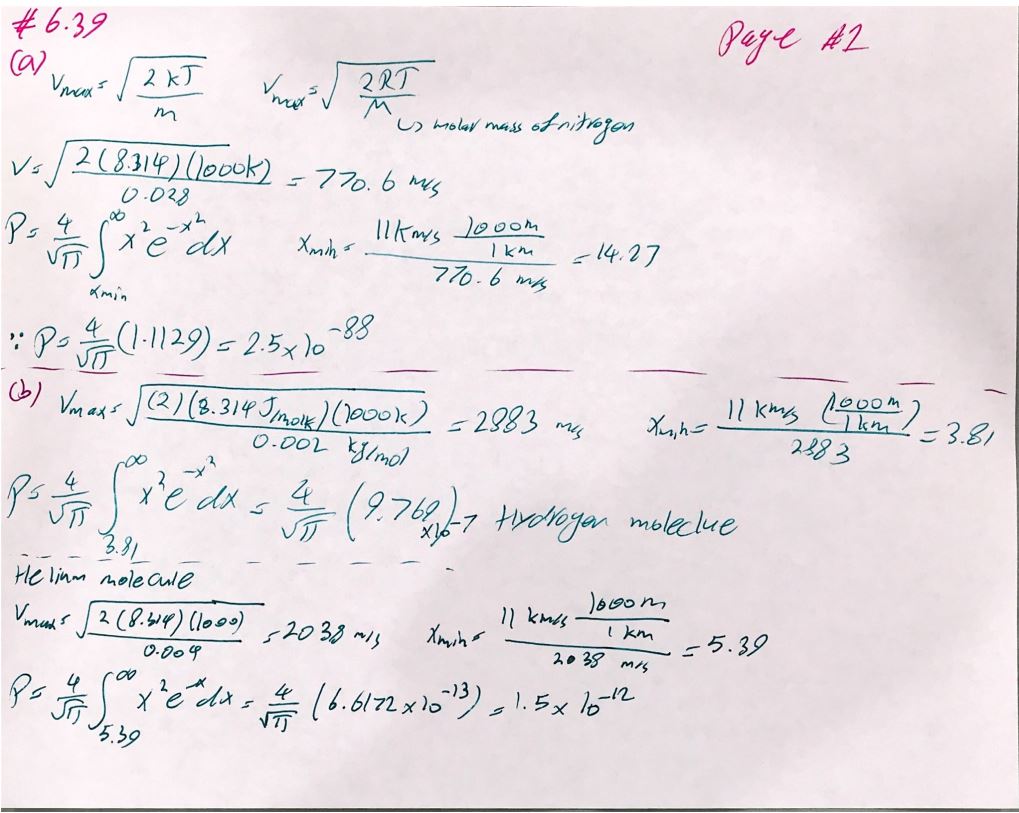 # 6.39
Page #1
(a) Vmax = √(2kT/m) Vmax = √(2RT/M)
↳ molar mass of nitrogen
V = √(2(8.314)(1000K)/0.028) = 770.6 m/s
P = 4/√π ∫_{xmin}^{∞} x² e^{-x²} dx Xmin = (11 Km/s 1000m/1km)/(770.6 m/s) = 14.27
∵ P = 4/√π (1.1129) = 2.5 x 10^{-88}
(b) Vmax = √((2)(8.314 J/molk)(1000k)/(0.002 kg/mol)) = 2883 m/s Xmin = (11 km/s (1000m/1km))/2883 = 3.81
P = 4/√π ∫_{3.81}^{∞} x² e^{-x²} dx = 4/√π (9.769) x10^{-7} Hydrogen moleclue
Helium molecule
Vmax = √(2(8.314)(1000)/0.004) = 2038 m/s Xmin = (11 km/s 1000m/1km)/(2038 m/s) = 5.39
P = 4/√π ∫_{5.39}^{∞} x² e^{-x} dx = 4/√π (6.6172 x 10^{-13}) = 1.5 x 10^{-12}